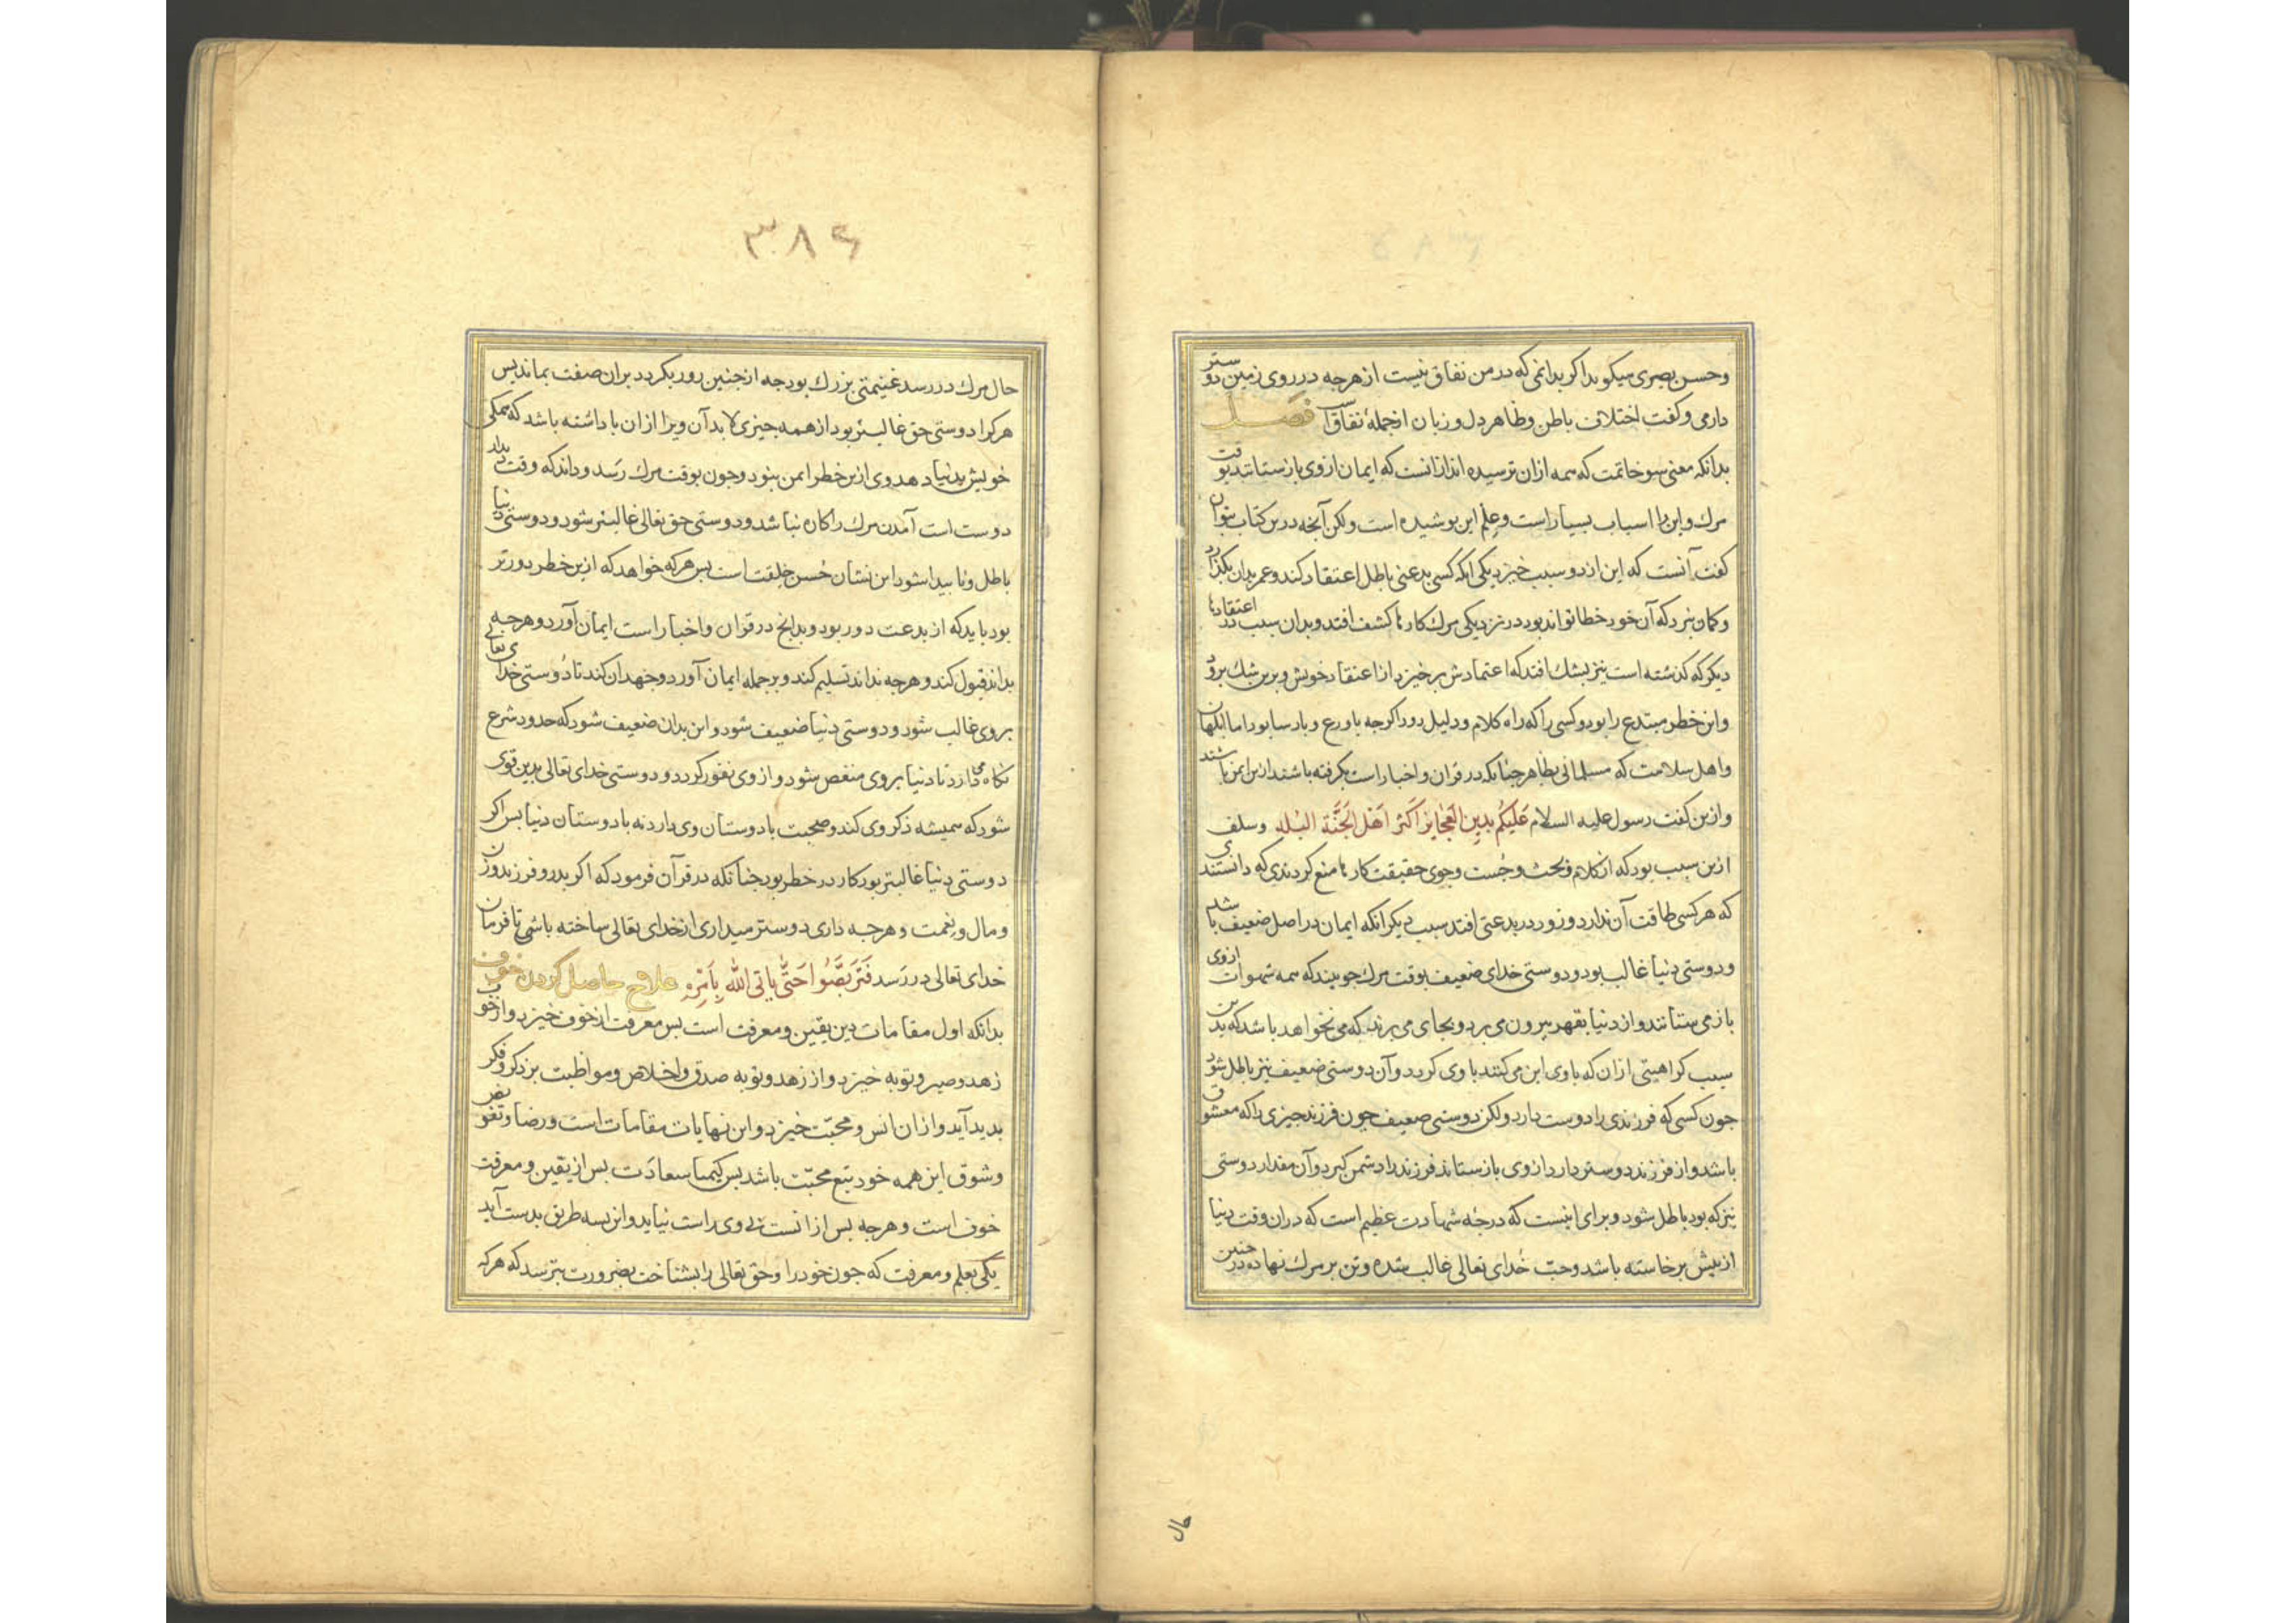 وحسن بصری میکوید اکر بدانمی که در من نفاق نیست از هرجه در روی زمین دوستر
دارمی و کفت اختلاف باطن و ظاهر و دل و زبان از جملهٔ نفاق است فصل
بدانکه معنی سو خاتمت که همه ازان ترسیده اند ازانست که ایمان از وی بازستانند بوقت
مرك و این را اسباب بسیار است و علم این بوشیده است ولکن آنجه درین کتاب بتوان
کفت آنست که این از دو سبب خیزد یکی انکه کسی بدعتی باطل اعتقاد کند و عمر بدان بکذارد
و کمان نبرد که آن خود خطا تواند بود در نزدیکی مرك کارها کشف افتد و بدان سبب در اعتقادها
دیکر که کذشته است نیز بشك افتد که اعتمادش برخیزد از اعتقاد خویش و برین شك برود
و این خطر مبتدع را بود و کسی را که راه کلام و دلیل رود اکرجه با ورع و بارسا بود اما ابلهان
و اهل سلامت که مسلمانی بظاهر جنانکه در قران و اخبار است بکرفته باشند ازین ایمن باشند
و ازین کفت رسول علیه السلام عَلَیکُم بِدینِ العَجایزِ اَکثَر اَهل الجَنَّة البُله و سلف
ازین سبب بود که از کلام و بحث و جُست و جوی حقیقت کارها منع کردندی که دانستند
که هر کسی طاقت آن ندارد و زود در بدعتی افتد سبب دیکر انکه ایمان در اصل ضعیف باشد
و دوستی دنیا غالب بود و دوستی خدای ضعیف بوقت مرك جو بیند که همه شهوات از وی
باز می ستانند و از دنیا بقهر بیرون می برد و بجای می برند که می نخواهد باشد که بدین
سبب کراهیتی ازان که با وی این می کنند با وی کردد و آن دوستی ضعیف نیز باطل شود
جون کسی که فرزندی را دوست دارد ولکن دوستی ضعیف جون فرزند جیزی را که معشوق
باشد و از فرزند دوستر دارد از وی بازستاند فرزند را دشمن کیرد و آن مقدار دوستی
نیز که بود باطل شود و برای اینست که درجهٔ شهادت عظیم است که دران وقت دنیا
از بیش برخاسته باشد و حبّ خُدای تعالی غالب شده و تن بر مرك نهاده در جنین
حال
۳۸۶
حال مرك در رسد غنیمتی بزرك بود جه از جنین زود بکردد بران صفت بماند بس
هرکرا دوستی حق غالبتر بود از همه جیزی لابد آن ویرا ازان باداشته باشد که همکی
خویش بدنیا دهد وی ازین خطر ایمن بود و جون بوقت مرك رسَد و داند که وقت دیدار
دوست است آمدن مرك را کاره نباشد و دوستی حق تعالی غالبتر شود و دوستی دنیا
باطل و نابیدا شود این نشان حُسن خلقت است بس هرکه خواهد که ازین خطر دورتر
بود باید که از بدعت دور بود و بدانج در قران و اخبار است ایمان آورد و هرجه
بداند قبول کند و هرجه نداند تسلیم کند و بر جمله ایمان آورد و جهد ان کند تا دوستی خدای تعالی
بر وی غالب شود و دوستی دنیا ضعیف شود و این بدان ضعیف شود که حدود شرع
نکاه می دارد تا دنیا بر وی منغص شود و از وی نفور کردد و دوستی خدای تعالی بدین قوی
شود که همیشه ذکر وی کند و صحبت با دوستان وی دارد نه با دوستان دنیا بس اکر
دوستی دنیا غالبتر بود کار در خطر بود جنانکه در قرآن فرمود که اکر بدر و فرزند و زن
و مال و نعمت و هرجه داری دوستر میداری از خدای تعالی ساخته باشی تا فرمان
خدای تعالی در رَسد فَتَرَبَّصُوا حَتّی یَاتیَ اللّه بِاَمرِه علاج حاصل کردن خوف
بدانکه اول مقامات دین یقین و معرفت است بس معرفت از خوف خیزد و از خوف
زهد و صبر و توبه خیزد و از زهد و توبه صدق و اخلاص و مواظبت بر ذکر و فکر
بدید آید و ازان انس و محبّت خیزد و این نهایات مقامات است و رضا و تفویض
و شوق این همه خود تبع محبّت باشد بس کیمیا سعادَت بس از یقین و معرفت
خوف است و هرجه بس از انست بی وی راست نیاید و این بسه طریق بدست آید
یکی بعلم و معرفت که جون خود را و حق تعالی را بشناخت بضرورت بترسد که هرکه